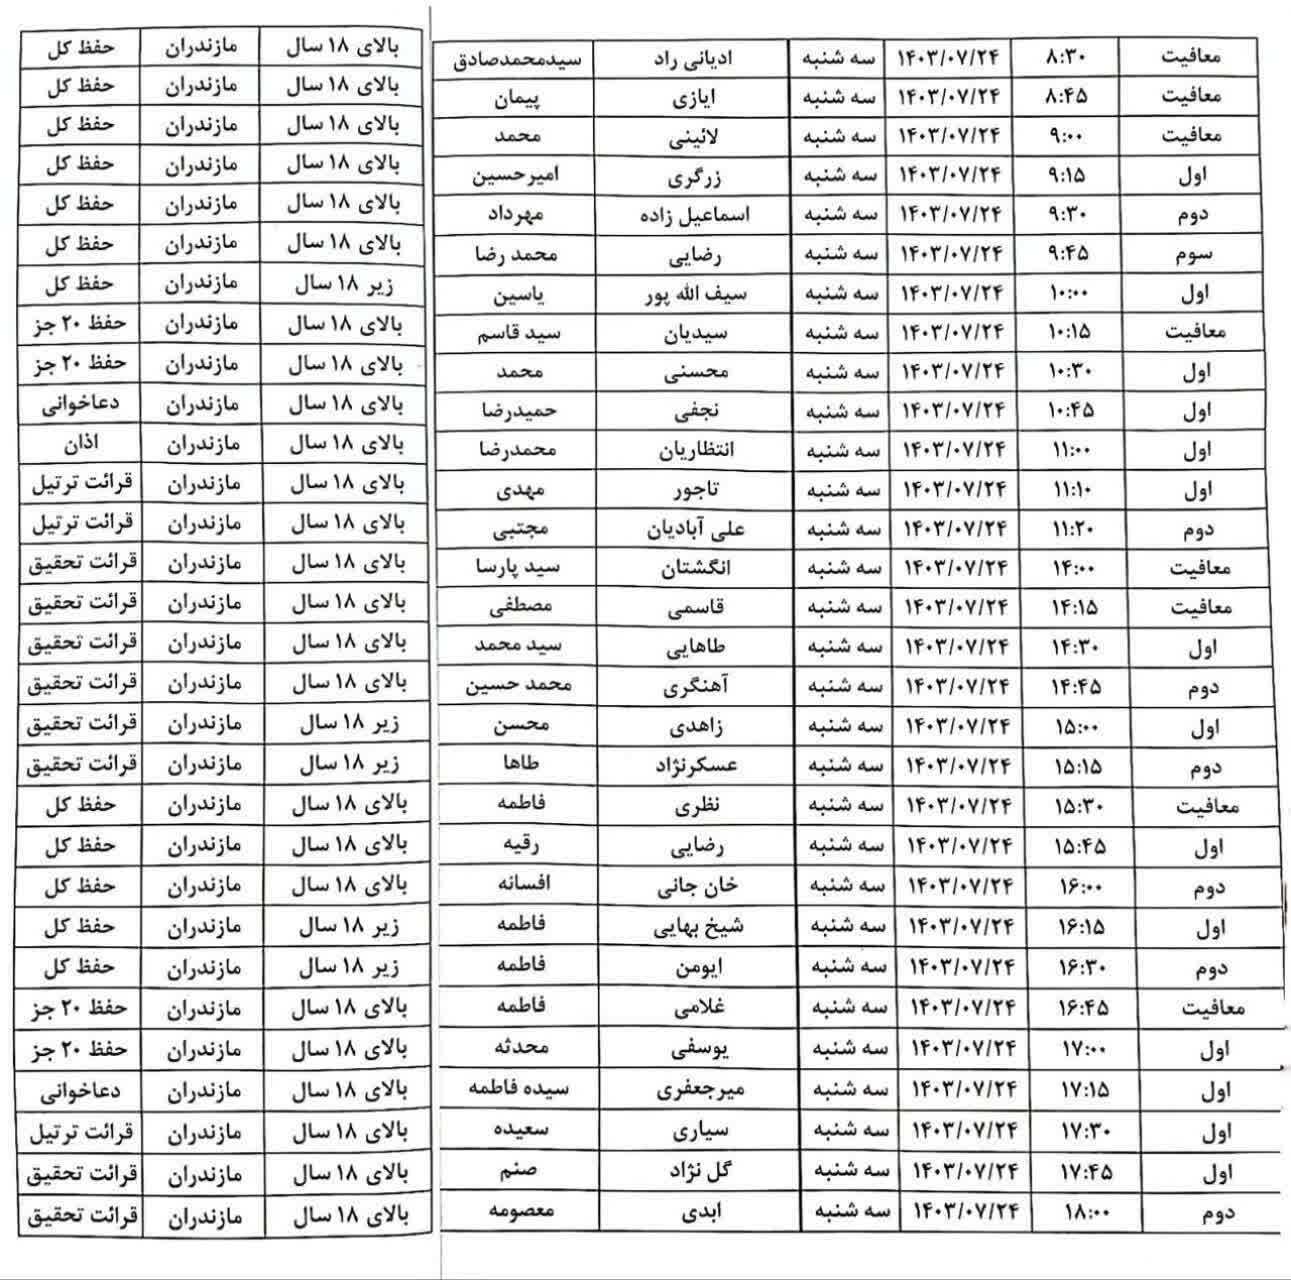 معافیت ۸:۳۰ ۱۴۰۳/۰۷/۲۴ سه شنبه ادیانی راد سیدمحمدصادق بالای ۱۸ سال مازندران حفظ کل
معافیت ۸:۴۵ ۱۴۰۳/۰۷/۲۴ سه شنبه ایازی پیمان بالای ۱۸ سال مازندران حفظ کل
معافیت ۹:۰۰ ۱۴۰۳/۰۷/۲۴ سه شنبه لائینی محمد بالای ۱۸ سال مازندران حفظ کل
اول ۹:۱۵ ۱۴۰۳/۰۷/۲۴ سه شنبه زرگری امیرحسین بالای ۱۸ سال مازندران حفظ کل
دوم ۹:۳۰ ۱۴۰۳/۰۷/۲۴ سه شنبه اسماعیل زاده مهرداد بالای ۱۸ سال مازندران حفظ کل
سوم ۹:۴۵ ۱۴۰۳/۰۷/۲۴ سه شنبه رضایی محمد رضا بالای ۱۸ سال مازندران حفظ کل
اول ۱۰:۰۰ ۱۴۰۳/۰۷/۲۴ سه شنبه سیف الله پور یاسین زیر ۱۸ سال مازندران حفظ کل
معافیت ۱۰:۱۵ ۱۴۰۳/۰۷/۲۴ سه شنبه سیدیان سید قاسم بالای ۱۸ سال مازندران حفظ ۲۰ جز
اول ۱۰:۳۰ ۱۴۰۳/۰۷/۲۴ سه شنبه محسنی محمد بالای ۱۸ سال مازندران حفظ ۲۰ جز
اول ۱۰:۴۵ ۱۴۰۳/۰۷/۲۴ سه شنبه نجفی حمیدرضا بالای ۱۸ سال مازندران دعاخوانی
اول ۱۱:۰۰ ۱۴۰۳/۰۷/۲۴ سه شنبه انتظاریان محمدرضا بالای ۱۸ سال مازندران اذان
اول ۱۱:۱۰ ۱۴۰۳/۰۷/۲۴ سه شنبه تاجور مهدی بالای ۱۸ سال مازندران قرائت ترتیل
دوم ۱۱:۲۰ ۱۴۰۳/۰۷/۲۴ سه شنبه علی آبادیان مجتبی بالای ۱۸ سال مازندران قرائت ترتیل
معافیت ۱۴:۰۰ ۱۴۰۳/۰۷/۲۴ سه شنبه انگشتان سید پارسا بالای ۱۸ سال مازندران قرائت تحقیق
معافیت ۱۴:۱۵ ۱۴۰۳/۰۷/۲۴ سه شنبه قاسمی مصطفی بالای ۱۸ سال مازندران قرائت تحقیق
اول ۱۴:۳۰ ۱۴۰۳/۰۷/۲۴ سه شنبه طاهایی سید محمد بالای ۱۸ سال مازندران قرائت تحقیق
دوم ۱۴:۴۵ ۱۴۰۳/۰۷/۲۴ سه شنبه آهنگری محمد حسین بالای ۱۸ سال مازندران قرائت تحقیق
اول ۱۵:۰۰ ۱۴۰۳/۰۷/۲۴ سه شنبه زاهدی محسن زیر ۱۸ سال مازندران قرائت تحقیق
دوم ۱۵:۱۵ ۱۴۰۳/۰۷/۲۴ سه شنبه عسکرنژاد طاها زیر ۱۸ سال مازندران قرائت تحقیق
معافیت ۱۵:۳۰ ۱۴۰۳/۰۷/۲۴ سه شنبه نظری فاطمه بالای ۱۸ سال مازندران حفظ کل
اول ۱۵:۴۵ ۱۴۰۳/۰۷/۲۴ سه شنبه رضایی رقیه بالای ۱۸ سال مازندران حفظ کل
دوم ۱۶:۰۰ ۱۴۰۳/۰۷/۲۴ سه شنبه خان جانی افسانه بالای ۱۸ سال مازندران حفظ کل
اول ۱۶:۱۵ ۱۴۰۳/۰۷/۲۴ سه شنبه شیخ بهایی فاطمه زیر ۱۸ سال مازندران حفظ کل
دوم ۱۶:۳۰ ۱۴۰۳/۰۷/۲۴ سه شنبه ایومن فاطمه زیر ۱۸ سال مازندران حفظ کل
معافیت ۱۶:۴۵ ۱۴۰۳/۰۷/۲۴ سه شنبه غلامی فاطمه بالای ۱۸ سال مازندران حفظ ۲۰ جز
اول ۱۷:۰۰ ۱۴۰۳/۰۷/۲۴ سه شنبه یوسفی محدثه بالای ۱۸ سال مازندران حفظ ۲۰ جز
اول ۱۷:۱۵ ۱۴۰۳/۰۷/۲۴ سه شنبه میرجعفری سیده فاطمه بالای ۱۸ سال مازندران دعاخوانی
اول ۱۷:۳۰ ۱۴۰۳/۰۷/۲۴ سه شنبه سیاری سعیده بالای ۱۸ سال مازندران قرائت ترتیل
اول ۱۷:۴۵ ۱۴۰۳/۰۷/۲۴ سه شنبه گل نژاد صنم بالای ۱۸ سال مازندران قرائت تحقیق
دوم ۱۸:۰۰ ۱۴۰۳/۰۷/۲۴ سه شنبه ابدی معصومه بالای ۱۸ سال مازندران قرائت تحقیق